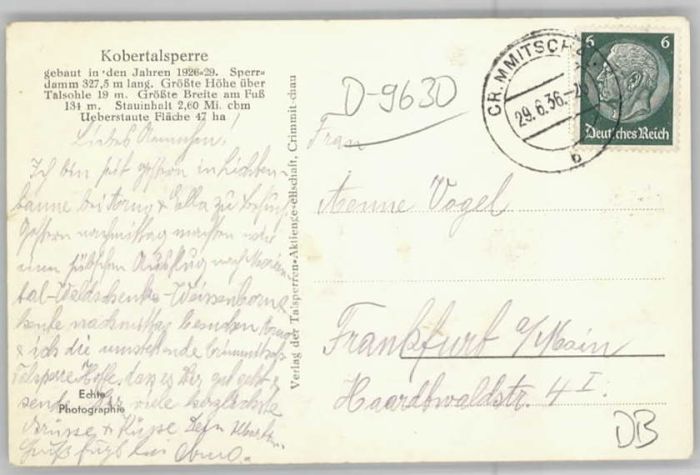 Kobertalsperre
gebaut in den Jahren 1926-29. Sperr-
damm 327,5 m lang. Größte Höhe über
Talsohle 19 m. Größte Breite am Fuß
134 m. Stauinhalt 2,60 Mi. cbm
Ueberstaute Fläche 47 ha
Liebes
Ich bin seit gestern in
bei & Ella zu
Gestern nachmittag machten wir
einen hübschen Ausflug nach
tal-Waldschenke-Weissenborn,
heute nachmittag besuchen
& ich die umstehende
Talsperre. Hoffe, dass es Dir gut geht &
sende Dir viele herzlichste
Grüsse & Küsse Dein
Echte
Photographie
Verlag der Talsperren-Aktiengesellschaft, Crimmitschau
D-9630
CR.MMITSCHAU
29.6.36.
b
6 6
Deutsches Reich
Frau
Aenne Vogel
Frankfurt a/Main
Haardtwaldstr. 4 I.
DB